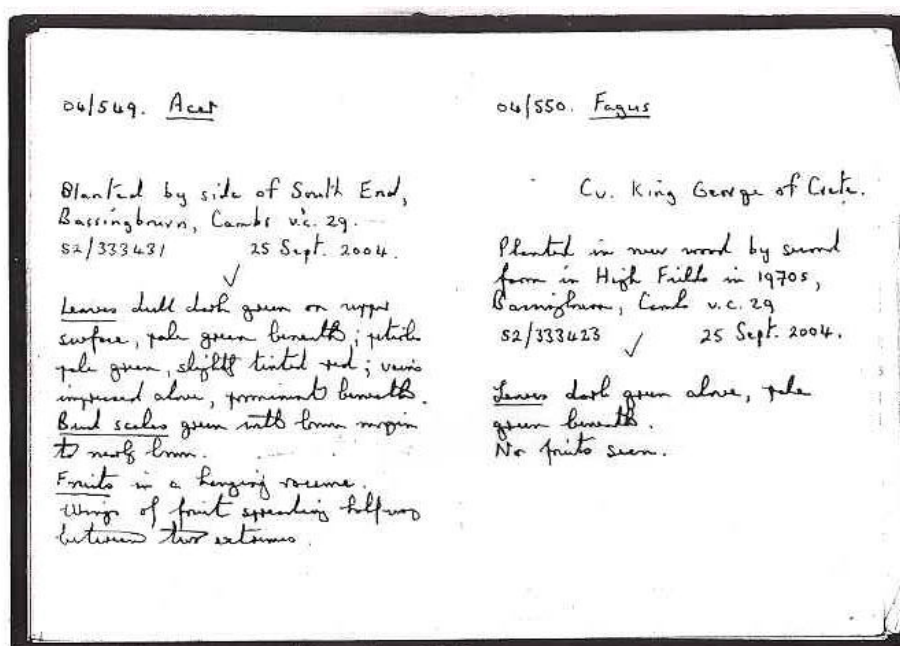 04/549. Acer
Planted by side of South End,
Bassingbourn, Cambs v.c. 29.
52/333431 25 Sept. 2004.
Leaves dull dark green on upper
surface, pale green beneath; petiole
pale green, slightly tinted red; veins
impressed above, prominent beneath.
Bud scales green with brown margin
to nearly brown.
Fruits in a hanging raceme.
Wings of fruit spreading halfway
between two extremes.
04/550. Fagus
Cv. King George of Crete.
Planted in new wood by second
farm in High Fields in 1970s,
Bassingbourn, Cambs v.c. 29
52/333423 25 Sept. 2004.
Leaves dark green above, pale
green beneath.
No fruits seen.